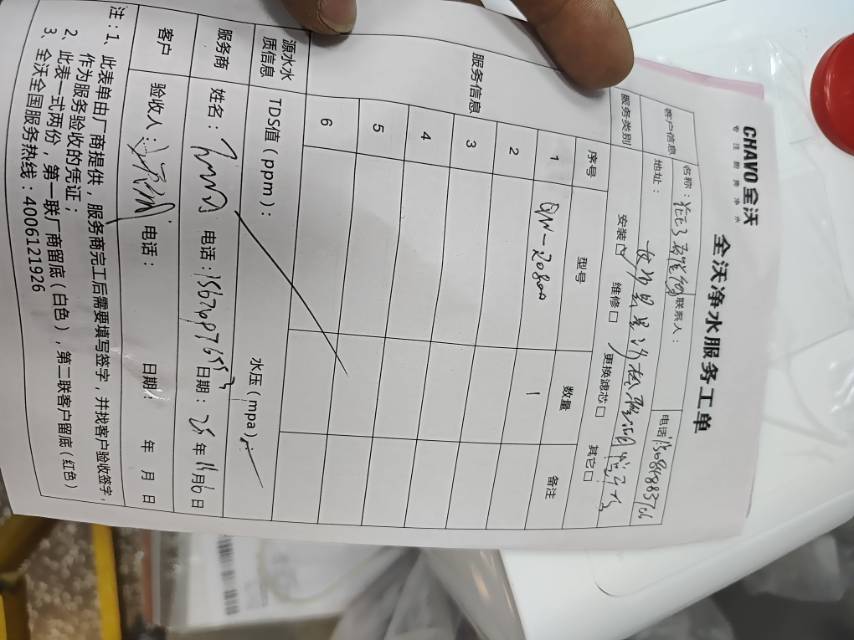 CHAVO 全沃
专注厨房净水
全沃净水服务工单
客户信息 名称: 联系人: 电话:
地址:
服务类别 安装☑ 维修□ 更换滤芯□ 其它□
服务信息 序号 型号 数量 备注
1 QN-20800 1
2
3
4
5
6
源水水质信息 TDS值(ppm): 水压(mpa):
服务商 姓名: 电话: 日期: 25年11月6日
客户 验收人: 电话: 日期: 年 月 日
注:1、此表单由厂商提供,服务商完工后需要填写签字,并找客户验收签字,
作为服务验收的凭证;
2、此表一式两份,第一联厂商留底(白色),第二联客户留底(红色)
3、全沃全国服务热线:4006121926